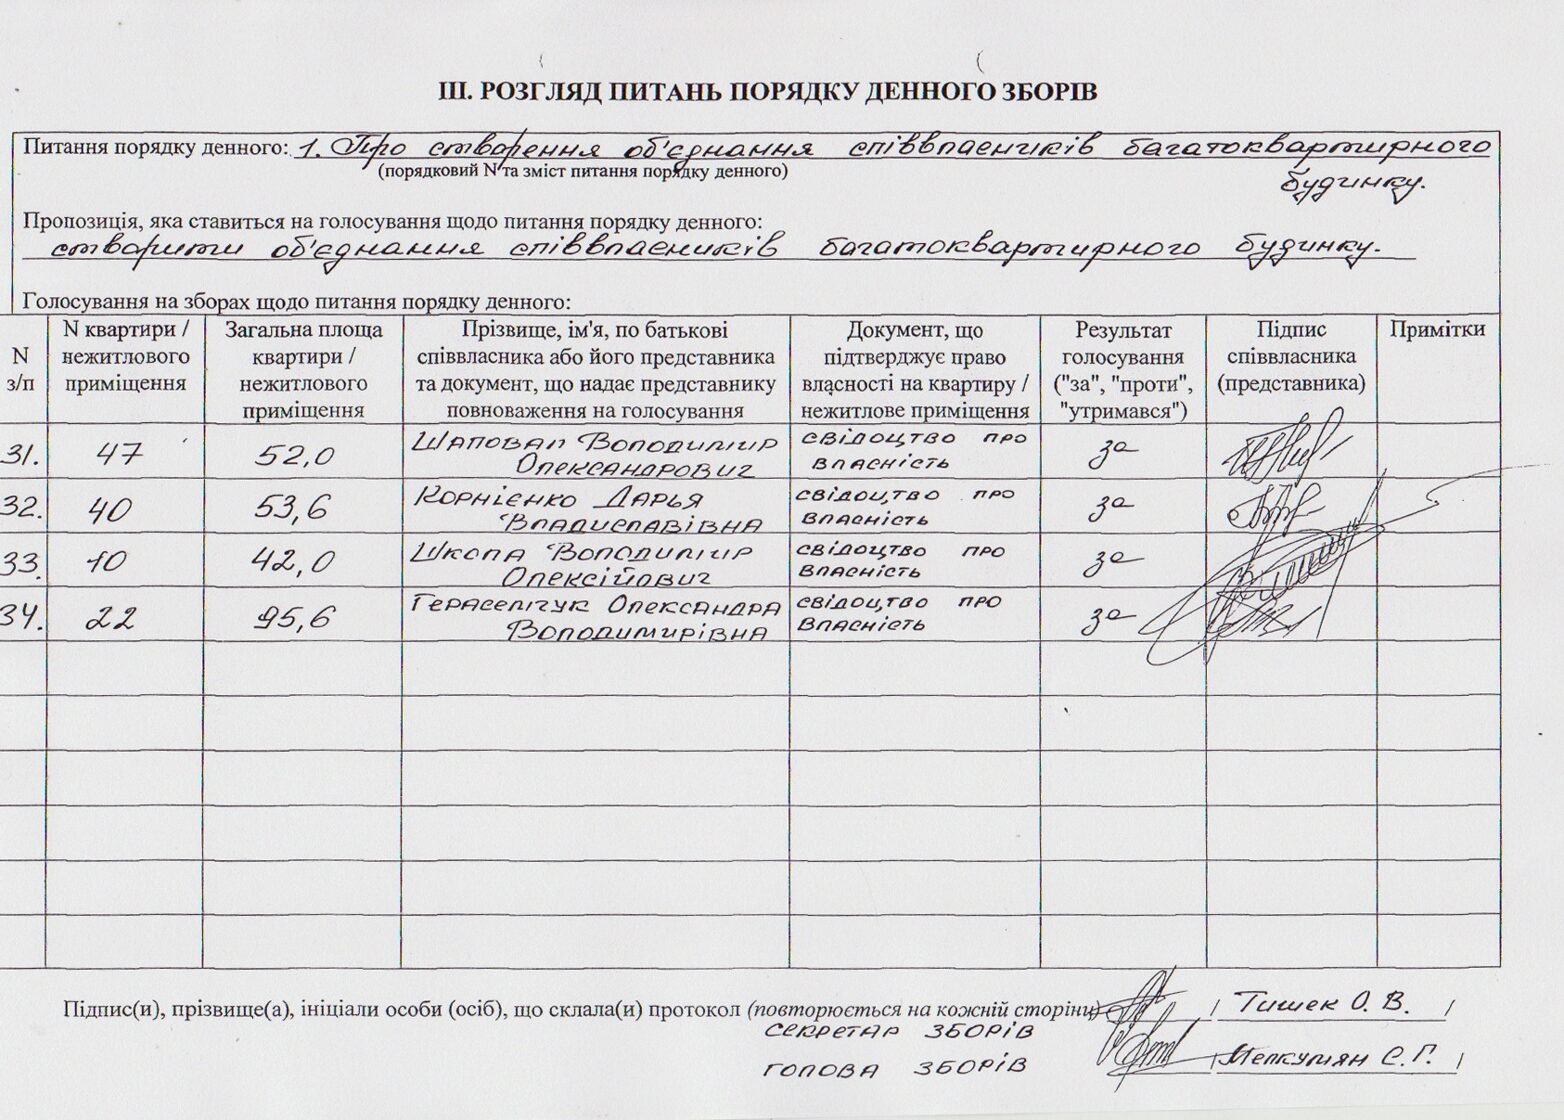 ІІІ. РОЗГЛЯД ПИТАНЬ ПОРЯДКУ ДЕННОГО ЗБОРІВ
Питання порядку денного: 1. Про створення об'єднання співвласників багатоквартирного
(порядковий N та зміст питання порядку денного)
будинку.
Пропозиція, яка ставиться на голосування щодо питання порядку денного:
створити об'єднання співвласників багатоквартирного будинку.
Голосування на зборах щодо питання порядку денного:
N з/п | N квартири / нежитлового приміщення | Загальна площа квартири / нежитлового приміщення | Прізвище, ім'я, по батькові співвласника або його представника та документ, що надає представнику повноваження на голосування | Документ, що підтверджує право власності на квартиру / нежитлове приміщення | Результат голосування ("за", "проти", "утримався") | Підпис співвласника (представника) | Примітки
31. | 47 | 52,0 | Шаповал Володимир Олександрович | свідоцтво про власність | за
32. | 40 | 53,6 | Корнієнко Дарья Владиславівна | свідоцтво про власність | за
33. | 10 | 42,0 | Школа Володимир Олексійович | свідоцтво про власність | за
34. | 22 | 95,6 | Герасемчук Олександра Володимирівна | свідоцтво про власність | за
Підпис(и), прізвище(а), ініціали особи (осіб), що склала(и) протокол (повторюється на кожній сторінці) / Тишек О. В. /
секретар зборів
голова зборів / Мелкумян С. Г. /